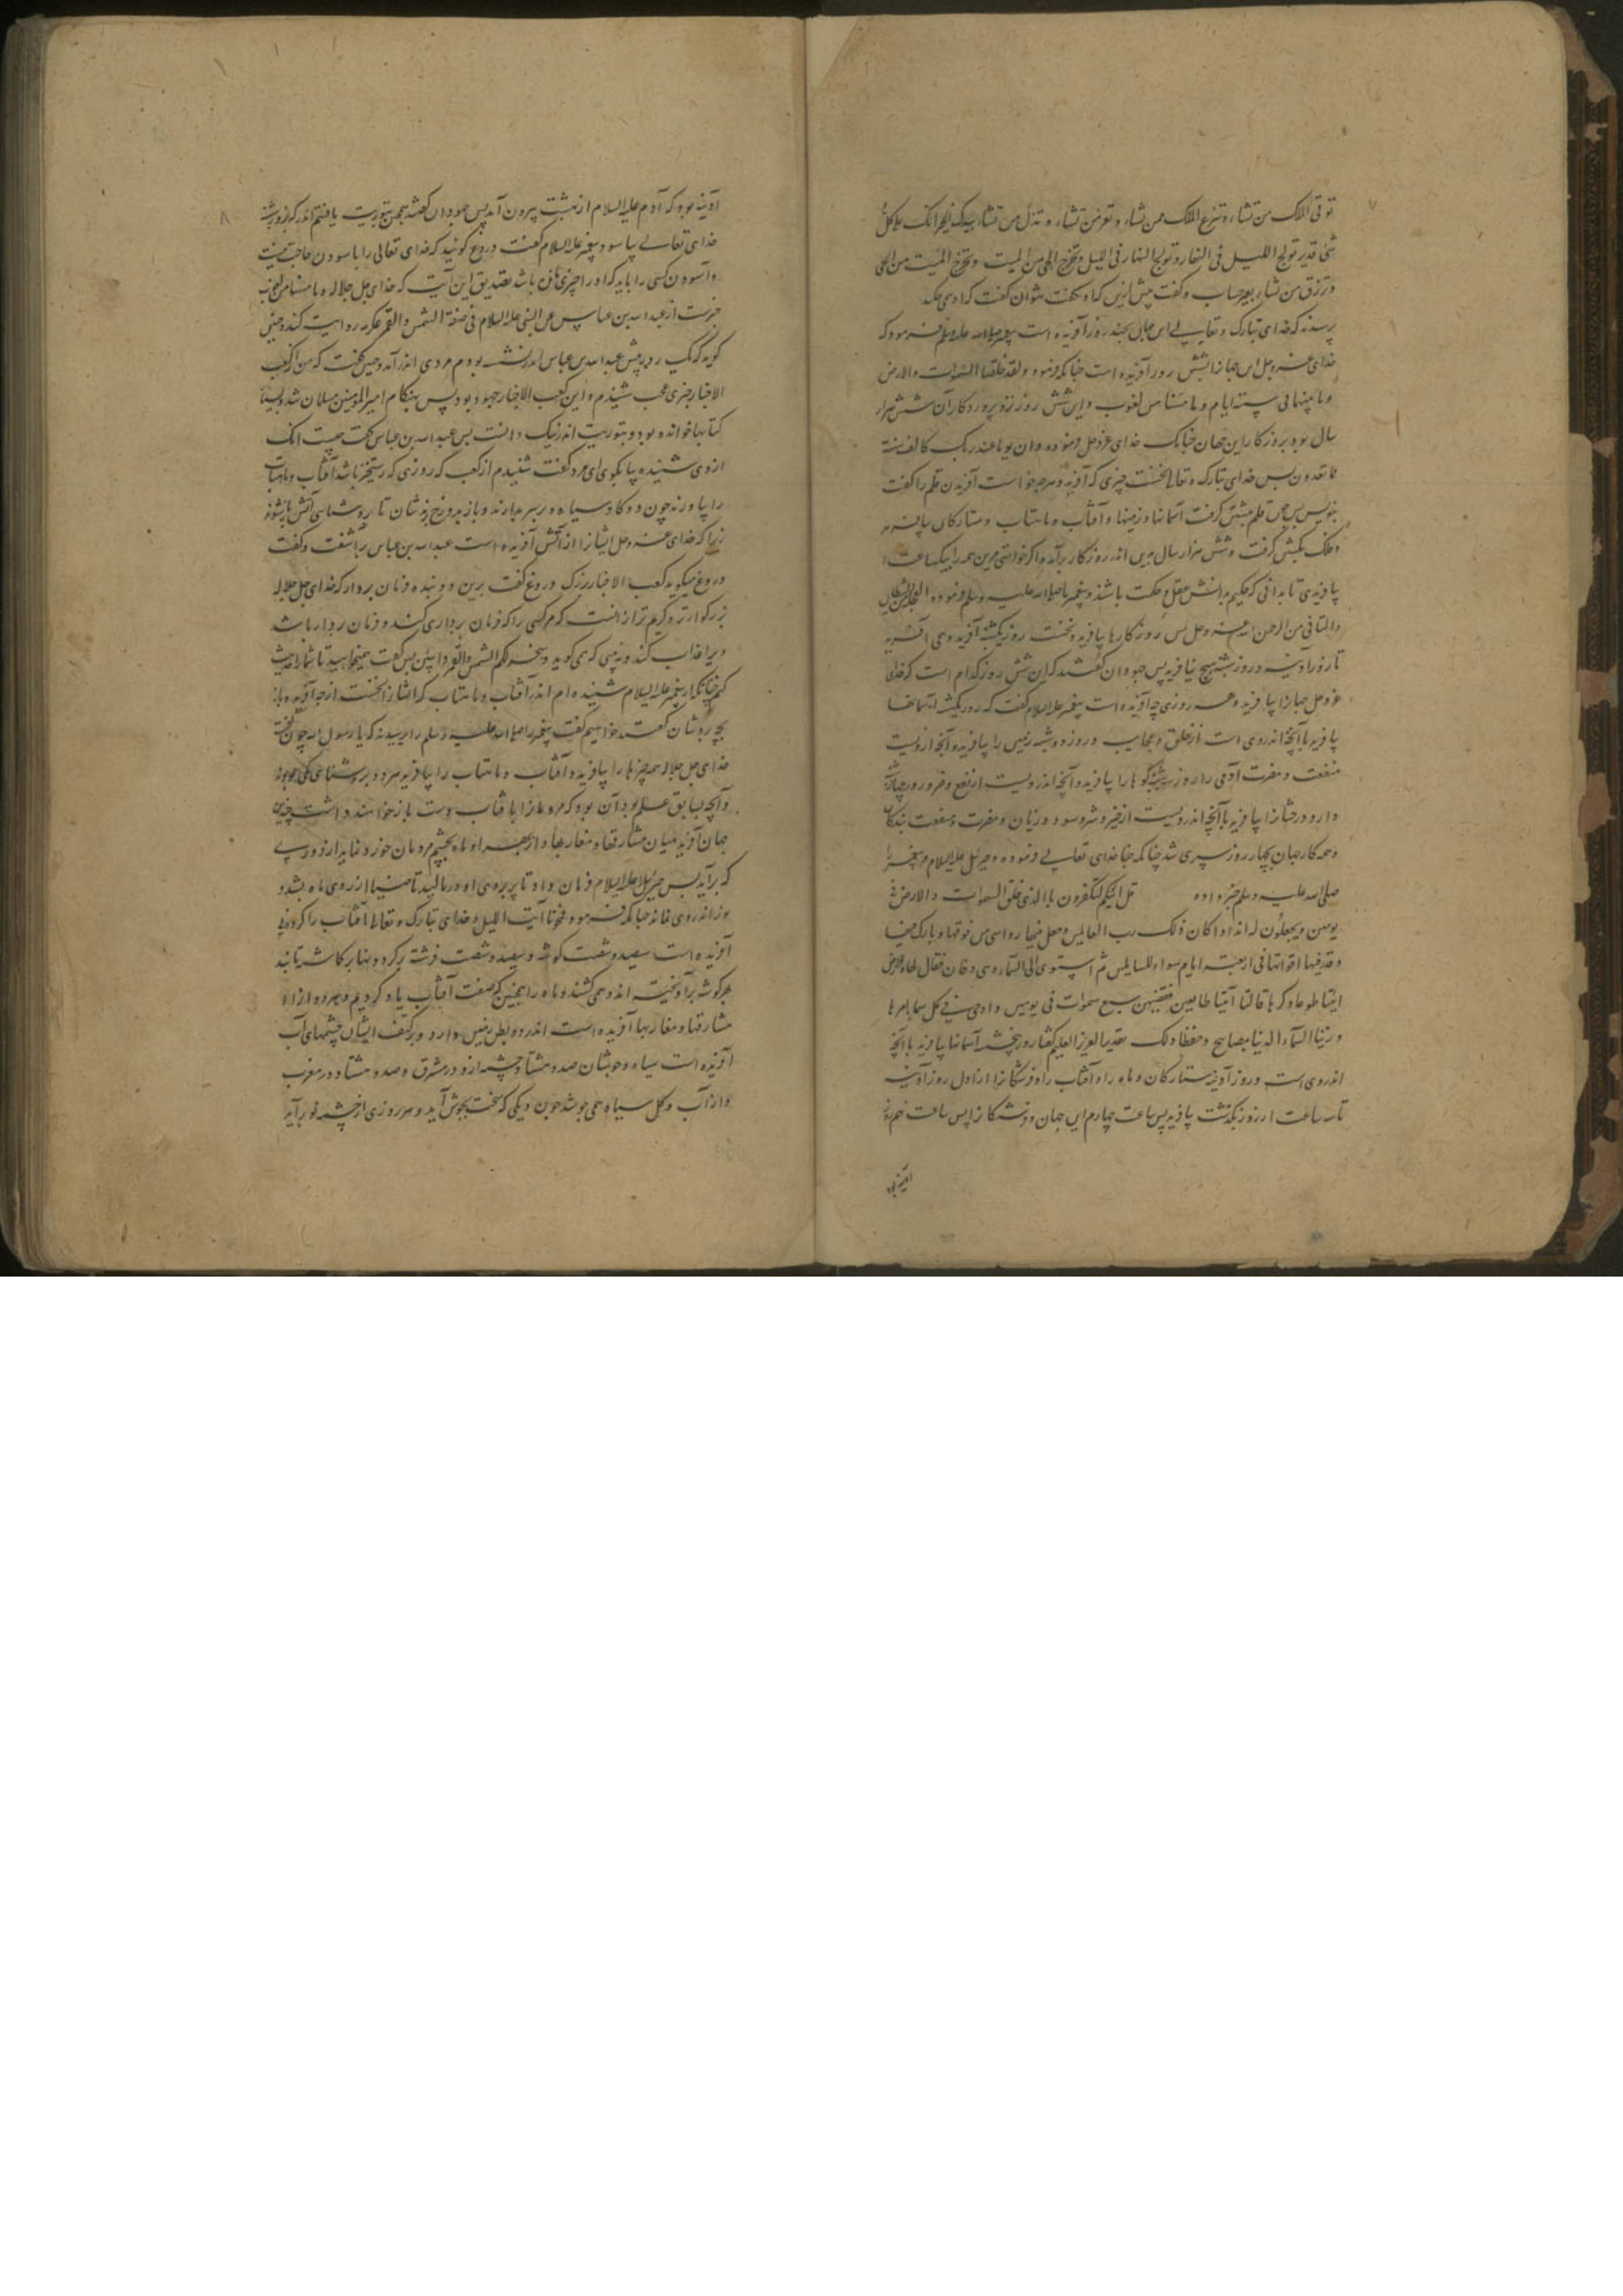 ۷
توتی الملک من تشاء و تنزع الملک ممن تشاء و تعز من تشاء و تذل من تشاء بیدک الخیر انک علی کل
شی قدیر تولج اللیل فی النهار و تولج النهار فی اللیل و تخرج الحی من المیت و تخرج المیت من الحی
و ترزق من تشاء بغیر حساب و گفت پیش ازین گناه
پرسیدند که خدای تبارک و تعالی این جهان بچند روز آفریده است پیغمبر صلی الله علیه و سلم فرمود که
خدای عز و جل این جهانرا بشش روز آفریده است چنانکه فرمود و لقد خلقنا السموات والارض
و ما بینهما فی ستة ایام و ما مسنا من لغوب و این شش روز نزد پروردگار آن شش هزار
سال بود بروزگار این جهان چنانک خدای عز و جل فرموده و ان یوما عند ربک کالف سنة
مما تعدون پس خدای تبارک و تعالی نخست چیزی که آفرید و هرچه خواست آفریدن قلم را گفت
بنویس پس چون قلم بنبشتن گرفت آسمانها و زمینها و آفتاب و ماهتاب و ستارگان بیافرید
و فلک بگشتن گرفت و شش هزار سال بدین اندر روزگار برآمد و اگر خواستی مرین همه را بیکساعت
بیافریدی تا بدانی که حکیم بدانش و عقل و حکمت باشد و پیغمبر ما صلی الله علیه و سلم فرموده العجلة من الشیطان
والتانی من الرحمن عز و جل پس روزکارها بیافرید و نخست روز یکشنبه آفرید و می آفرید
تا روز آدینه و روز شنبه هیچ نیافرید پس جهودان گفتند که این شش روز کدام است که خدای
عز و جل جهانرا بیافرید و هر روزی چه آفریده است پیغمبر علیه السلام گفت که روز یکشنبه آسمانها
بیافرید با آنچه اندروی است از خلق و عجایب و روز دوشنبه زمین را بیافرید و آنچه ازویست
منفعت و مضرت آدمی را و روز سه شنبه کوه ها را بیافرید و آنچه اندرویست از نفع و ضرر و روز چهارشنبه
دار و درختانرا بیافرید با آنچه اندرویست از خیر و شر و سود و زیان و مضرت و منفعت بندگان
و همه کار جهان بچهار روز سپری شد چنانکه خدای تعالی فرموده و جبرئیل علیه السلام مر پیغمبر را
صلی الله علیه و سلم خبر داده قل ائنکم لتکفرون باالذی خلق السموات والارض فی
یومین و یجعلون له اندادا کان ذلک رب العالمین و جعل فیها رواسی من فوقها و بارک فیها
و قدر فیها اقواتها فی اربعة ایام سواء للسایلین ثم استوی الی السماء و هی دخان فقال لها و للارض
ایتیا طوعا و کرها قالتا اتینا طایعین فقضیهن سبع سموات فی یومین و اوحی فی کل سماء امرها
و زینا السماء الدنیا بمصابیح و حفظا ذلک تقدیر العزیز العلیم گفتا روز پنجشنبه آسمانها بیافرید با آنچه
اندروی است و روز آدینه ستارگان و ماه را و آفتاب را و فرشتگانرا از اول روز آدینه
تا سه ساعت از روز بگذشت بیافرید پس ساعت چهارم این جهان و فرشتگانرا پس ساعت
آدینه بود
۸
آدینه بود که آدم علیه السلام از بهشت بیرون آمد پس جهودان گفتند همچنین بتوریت یافتیم اندر که روز شنبه
خدای تعالی بیاسود پیغمبر علیه السلام گفت دروغ گویید که خدای تعالی را باسودن حاجت نیست
و آسودن کسی را باید که او را چیزی باشد تصدیق این آیت که خدای جل جلاله و ما مسنا من لغوب
خبرست از عبد الله بن عباس عن النبی علیه السلام فی صفة الشمس والقمر عکرمه روایت کند و چنین
گوید که یک روز پیش عبد الله بن عباس اندر نشسته بودم مردی اندر آمد و چنین گفت که من از کعب
الاخبار خبری عجب شنیدم و این کعب الاخبار جهود بود پس بهنگام امیر المومنین مسلمان شد و بسیار
کتابها خوانده بود و بتوریت اندر نیک دانست پس عبد الله بن عباس گفت چیست آنک
ازوی شنیدهٔ بیا بگوی ای مرد گفت شنیدم از کعب که روزی که رستخیز باشد آفتاب و ماهتاب
را بیاورند چون دو گاو سیاه و بر سر بدارند و باز بدوزخ برندشان تا روشنایی آتش باز شوند
زیرا که خدای عز و جل ایشانرا از آتش آفریده است عبد الله بن عباس برآشفت و گفت
دروغ میگوید کعب الاخبار بزرگ دروغ گفت برین دو بنده فرمان بردار که خدای جل جلاله
بزرگوارتر و کریم تر از آنست که مر کسی را که فرمان برداری کند و فرمان بردار باشد
ویرا عذاب کند و نه بینی که همی گوید و سخر لکم الشمس والقمر دائبین پس گفت همیخواهید تا شما را حدیث
کنم چنانکه از پیغمبر علیه السلام شنیده ام اندر آفتاب و ماهتاب که ایشانرا نخست از چه آفرید و باز
بچه بردشان گفتند خواهیم گفت پیغمبر را صلی الله علیه و سلم را پرسیدند که یا رسول الله چون نخست
خدای جل جلاله همه چیزها را بیافرید و آفتاب و ماهتاب را بیافرید هر دو بروشنایی یکی بودند
و آنچه بسابق علم بود آن بود که مردمانرا با آفتاب دست باز خواهند داشت چنین
جهان آفرید میان مشارقها و مغاربها و از بهر او ماه بچشم مردمان خورد نماید از دوری
که برآید پس جبرئیل علیه السلام فرمان داد تا پر بروی او درمالید تا ضیا از روی ماه بشد و
نور اندروی نماند چنانکه فرمود فمحونا آیت اللیل و خدای تبارک و تعالی آفتاب را گردونی
آفریده است سیصد و شصت گوشه و سیصد و شصت فرشته بر گردونها برگماشته تا بد
هر گوشه برآویخته اند و همی کشند و ماه را همچنین که صفت آفتاب یاد کردیم و هر دو از او
مشارقها و مغاربها آفریده است اندر دو زمین دارد و بر کتف ایشان چشمهای آب
آفریده است سیاه و جوشان صد و هشتاد چشمه ازو در مشرق و صد و هشتاد در مغرب
و از آب و گل سیاه همی جوشد چون دیگی که سخت بجوش آید و هر روزی از چشمه نو برآید